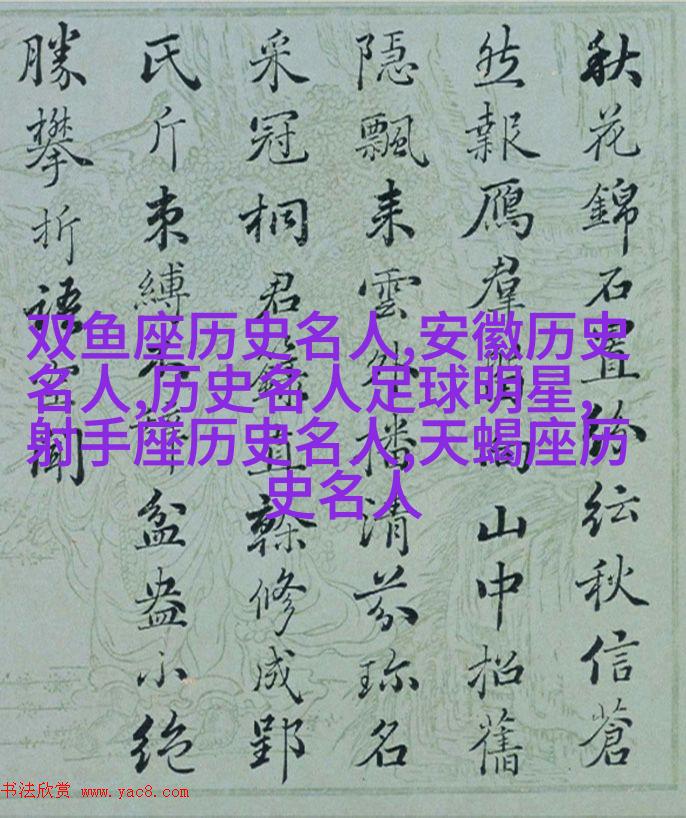 秋花錦石置紛紜秋信蒼
然報雁群山中招舊
隱飄来雲外播清芬珎名
采冠桐君直幹修成郢
氏斤束縛盆盎小絶
勝攀折語聞
双鱼座历史名人,安徽历史
名人,历史名人足球明星,
射手座历史名人,天蝎座历
史名人
书法欣赏 www.yac8.com